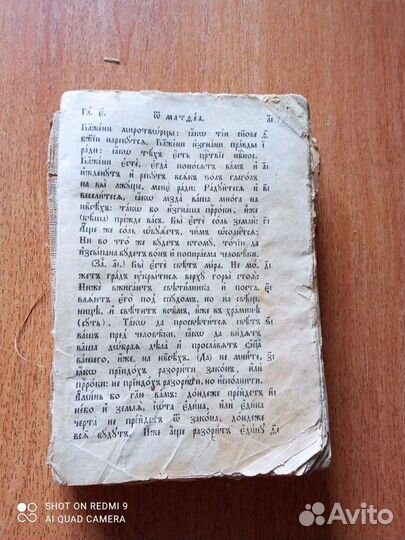 Гл҃. є҃. Ѿ матѳе́а. а҃і
Бл҃же́ни миротво́рцы: ꙗ҆́кѡ ті́и сн҃ове
бж҃їи нарекꙋ́тсѧ. Бл҃же́ни изгна́ни пра́вды
ра́ди: ꙗ҆́кѡ тѣ́хъ є҆́сть црⷭ҇твїе нбⷭ҇ное.
Бл҃же́ни є҆стѐ, є҆гда̀ поно́сѧтъ ва́мъ и҆
и҆жденꙋ́тъ и҆ рекꙋ́тъ всѧ́къ ѕо́лъ глаго́лъ
на вы̀ лжꙋ́ще, менѐ ра́ди: Ра́дꙋйтесѧ и҆ в҃і
весели́тесѧ, ꙗ҆́кѡ мзда̀ ва́ша мно́га на
нб҃сѣ́хъ: та́кѡ бо и҆згна́ша прⷪ҇ро́ки, и҆̀же
(бѣ́ша) пре́жде ва́съ. Вы̀ є҆стѐ со́ль землѝ:
а҆́ще же со́ль ѡ҆бꙋѧ́етъ, чи́мъ ѡ҆соли́тсѧ;
Ни во что́ же бꙋ́детъ ктомꙋ̀, то́чїю да
и҆зсы́пана бꙋ́детъ во́нъ и҆ попира́ема человѣ̑ки.
(За҃. а҃і.) Вы̀ є҆стѐ свѣ́тъ мі́ра. Не мо́-
жетъ гра́дъ ᲂу҆кры́тисѧ верхꙋ̀ горы̀ стоѧ̀:
Нижѐ вжига́ютъ свѣти́лника и҆ поста- є҃і
влѧ́ютъ є҆го̀ под̾ спꙋ́домъ, но на свѣ́щ-
ницѣ, и҆ свѣ́титъ всѣ́мъ, и҆̀же въ хра́минѣ
(сꙋ́ть). Та́кѡ да просвѣти́тсѧ свѣ́тъ
ва́шъ пред̾ человѣ́ки, ꙗ҆́кѡ да ви́дѧтъ
ва́ша дѡ́браѧ дѣла̀ и҆ просла́вѧтъ Ѻ҆ц҃а̀
ва́шего, и҆́же, на нб҃сѣ́хъ. (Да) не мни́те, з҃і
ꙗ҆́кѡ прїидо́хъ разори́ти зако́нъ, и҆лѝ
прⷪ҇ро́ки: не прїидо́хъ разори́ти, но и҆спо́лнити.
А҆ми́нь бо гл҃ю ва́мъ: до́ндеже пре́йдетъ и҃і
не́бо и҆ землѧ̀, і҆ѡ́та є҆ди́на, и҆лѝ є҆ди́на
черта̀ не пре́йдетъ ѿ зако́на, до́ндеже
всѧ̑ бꙋ́дꙋтъ. И҆́же а҆́ще разори́тъ є҆ди́нꙋ ѳ҃і
SHOT ON REDMI 9
AI QUAD CAMERA
Avito